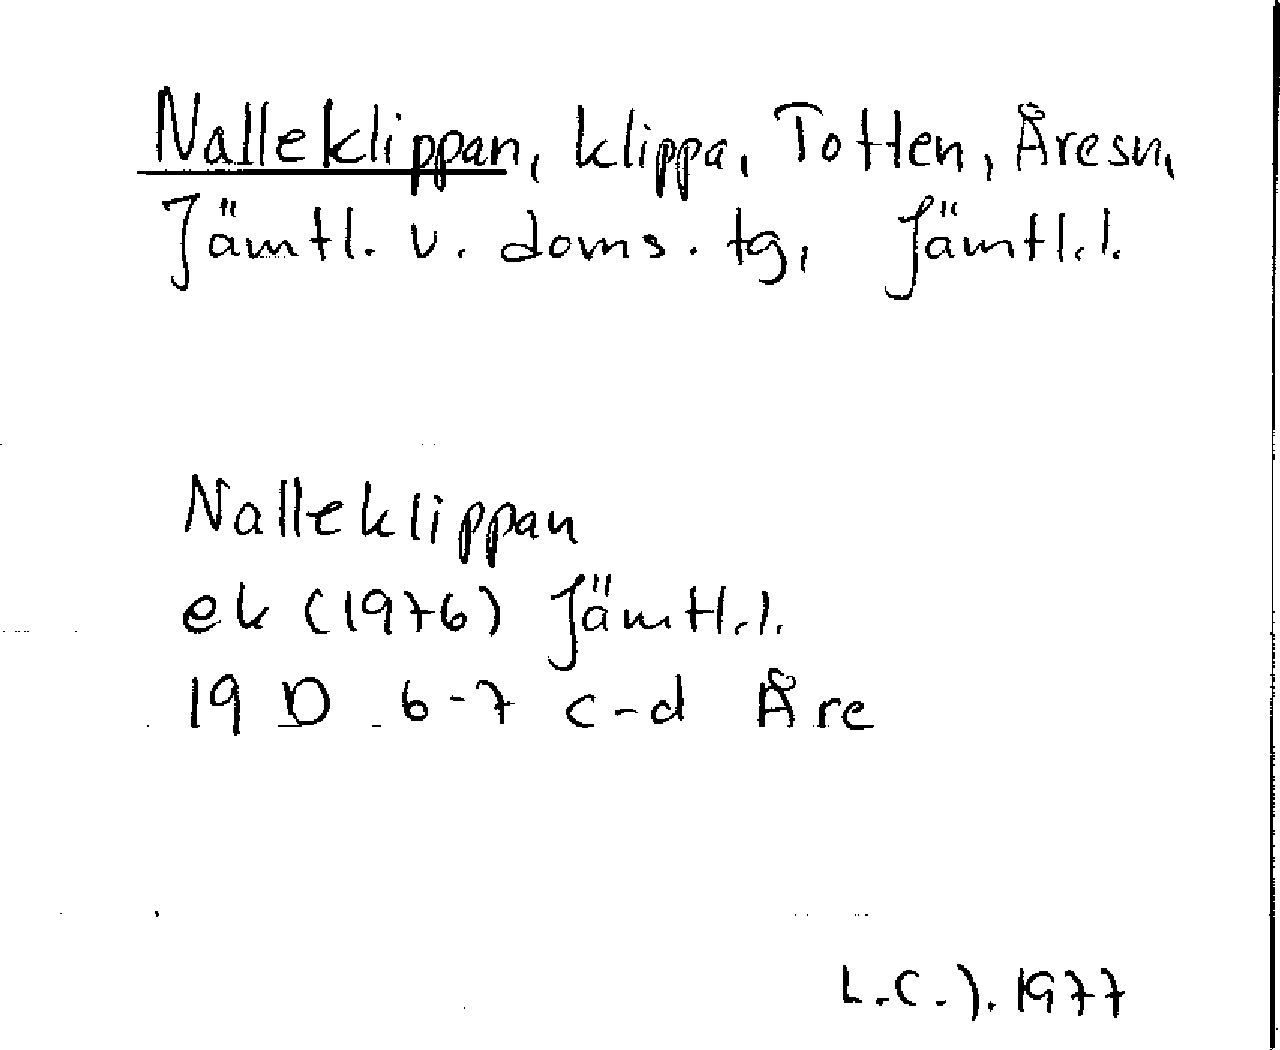 Nalleklippan, klippa, Totten, Åresn,
Jämtl. v. doms. tg, Jämtl. l.
Nalleklippan
ek (1976) Jämtl. l.
19 D 6-7 c-d Åre
L.C.J. 1977